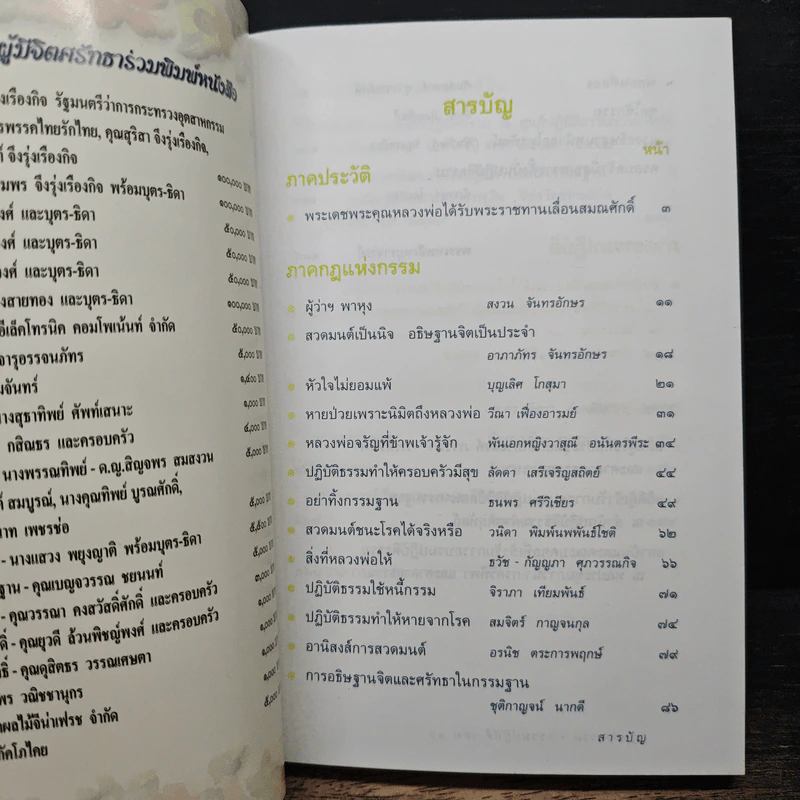 ผู้มีจิตศรัทธาร่วมพิมพ์หนังสือ
งเรืองกิจ รัฐมนตรีว่าการกระทรวงอุตสาหกรรม
รพรรคไทยรักไทย, คุณสุริสา จึงรุ่งเรืองกิจ,
จึงรุ่งเรืองกิจ
มพร จึงรุ่งเรืองกิจ พร้อมบุตร-ธิดา ๑๐๐,๐๐๐ บาท
งศ์ และบุตร-ธิดา ๑๐๐,๐๐๐ บาท
และบุตร-ธิดา ๕๐,๐๐๐ บาท
งศ์ และบุตร-ธิดา ๕๐,๐๐๐ บาท
งสายทอง และบุตร-ธิดา ๕๐,๐๐๐ บาท
อีเล็คโทรนิค คอมโพเน้นท์ จำกัด ๑๐๐,๐๐๐ บาท
จารุอรรจนภัทร ๕๐,๐๐๐ บาท
มจันทร์ ๕,๐๐๐ บาท
างสุธาทิพย์ ศัพท์เสนาะ ๑,๔๐๐ บาท
กสิณธร และครอบครัว ๔,๐๐๐ บาท
นางพรรณทิพย์ - ด.ญ.สิญจพร สมสงวน ๕,๐๐๐ บาท
สมบูรณ์, นางคุณทิพย์ บูรณศักดิ์,
าท เพชรช่อ ๕,๐๐๐ บาท
- นางแสวง พยุงญาติ พร้อมบุตร-ธิดา ๕,๕๐๐ บาท
ฐาน - คุณเบญจวรรณ ชยนนท์ ๕,๐๐๐ บาท
- คุณวรรณา คงสวัสดิ์ศักดิ์ และครอบครัว ๓,๐๐๐ บาท
- คุณยุวดี ล้วนพิชญ์พงศ์ และครอบครัว ๑,๐๐๐ บาท
- คุณดุสิตธร วรรณเศษตา ๑,๐๐๐ บาท
พร วณิชชานุกร ๑,๐๐๐ บาท
ผลไม้จีน่าเฟรช จำกัด ๑,๐๐๐ บาท
กัดโภไคย
สารบัญ
หน้า
ภาคประวัติ
พระเดชพระคุณหลวงพ่อได้รับพระราชทานเลื่อนสมณศักดิ์ ๓
ภาคกฎแห่งกรรม
ผู้ว่าฯ พาหุง สงวน จันทรอักษร ๑๑
สวดมนต์เป็นนิจ อธิษฐานจิตเป็นประจำ
อาภาภัทร จันทรอักษร ๑๘
หัวใจไม่ยอมแพ้ บุญเลิศ โกสุมา ๒๑
หายป่วยเพราะนิมิตถึงหลวงพ่อ วีณา เฟื่องอารมย์ ๓๑
หลวงพ่อจรัญที่ข้าพเจ้ารู้จัก พันเอกหญิงวาสุณี อนันตรพีระ ๓๔
ปฏิบัติธรรมทำให้ครอบครัวมีสุข ลัดดา เสรีเจริญสถิตย์ ๔๔
อย่าทิ้งกรรมฐาน ธนพร ศรีวิเชียร ๔๙
สวดมนต์ชนะโรคได้จริงหรือ วนิดา พิมพ์นพพันธ์โชติ ๖๒
สิ่งที่หลวงพ่อให้ ธวัช - กัญญภา ศุภวรรณกิจ ๖๖
ปฏิบัติธรรมใช้หนี้กรรม จิราภา เทียมพันธ์ ๗๑
ปฏิบัติธรรมทำให้หายจากโรค สมจิตร์ กาญจนกุล ๗๔
อานิสงส์การสวดมนต์ อรนิช ตระการพฤกษ์ ๗๙
การอธิษฐานจิตและศรัทธาในกรรมฐาน
ชุติกาญจน์ นากดี ๘๖
สารบัญ